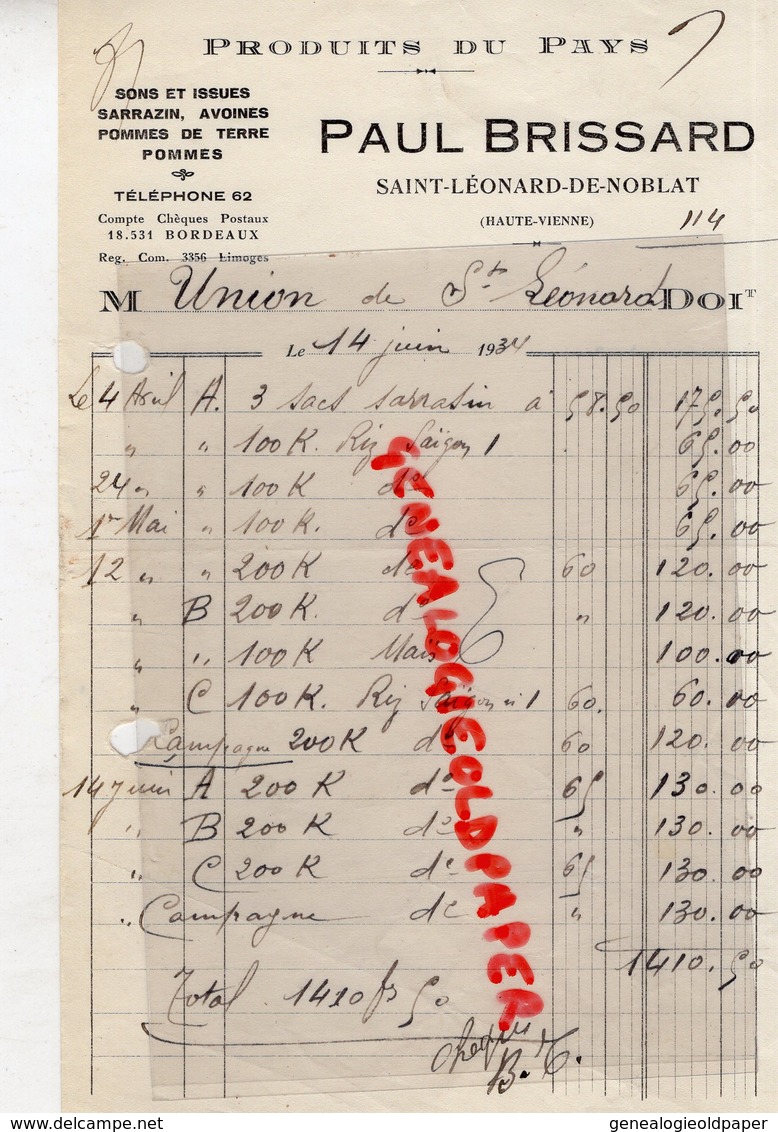 PRODUITS DU PAYS
SONS ET ISSUES
SARRAZIN, AVOINES
POMMES DE TERRE
POMMES
TÉLÉPHONE 62
Compte Chèques Postaux
18.531 BORDEAUX
Reg. Com. 3356 Limoges
PAUL BRISSARD
SAINT-LÉONARD-DE-NOBLAT
(HAUTE-VIENNE)
114
M Union de St Léonard DOIT
Le 14 juin 1934
Le 4 Avril A. 3 sacs sarrasin à 58.50 175.50
" " 100 K. Riz Saïgon 1 65.00
24 " " 100 K do 65.00
1er Mai " 100 K. do 65.00
12 " " 200 K do 60 120.00
" B 200 K. do " 120.00
" " 100 K Maïs 100.00
" C 100 K. Riz Saïgon n 1 60. 60.00
Campagne 200 K do 60 120.00
14 juin A 200 K do 65 130.00
" B 200 K do " 130.00
" C 200 K do 65 130.00
" Campagne do " 130.00
1410.50
Total . 1410 frs 50
chèque
B. C.
GENEALOGIEOLDPAPER
www.delcampe.net
genealogieoldpaper